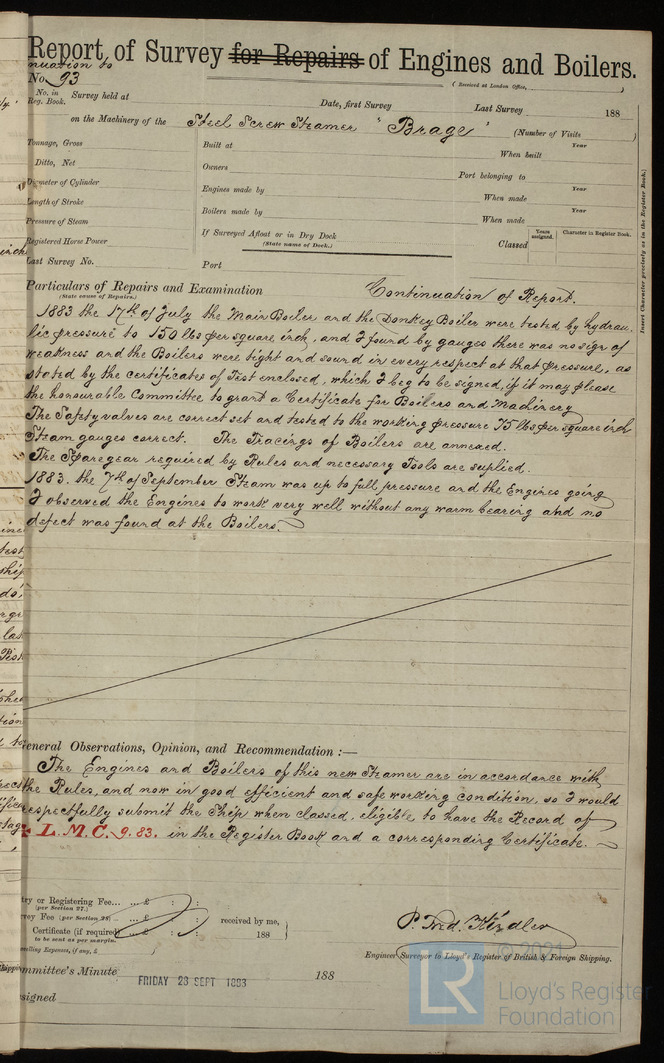 Report of Survey for Repairs of Engines and Boilers.
nuation to
No 93
(Received at London Office, )
No. in Reg. Book.
Survey held at
Date, first Survey
Last Survey
188
on the Machinery of the Steel Screw Steamer "Brage"
(Number of Visits )
Tonnage, Gross
Built at
When built
Year
Ditto, Net
Owners
Port belonging to
Diameter of Cylinder
Engines made by
When made
Year
Length of Stroke
Boilers made by
When made
Year
Pressure of Steam
If Surveyed Afloat or in Dry Dock
(State name of Dock.)
Classed
Years assigned.
Character in Register Book.
Registered Horse Power
Last Survey No.
Port
Insert Character precisely as in the Register Book.)
Particulars of Repairs and Examination
(State cause of Repairs.)
Continuation of Report.
1883 the 17th of July the Main Boiler and the Donkey Boiler were tested by hydrau-
lic pressure to 150 lbs per square inch, and I found by gauges there was no sign of
weakness and the Boilers were tight and sound in every respect at that pressure, as
stated by the certificates of Test enclosed, which I beg to be signed, if it may please
the honourable Committee to grant a Certificate for Boilers and Machinery
The Safety valves are correct set and tested to the working pressure 75 lbs per square inch
Steam gauges correct. The Tracings of Boilers are annexed.
The Sparegear required by Rules and necessary Tools are suplied.
1883. the 7th of September Steam was up to full pressure and the Engines going
I observed the Engines to work very well without any warm bearing and no
defect was found at the Boilers
General Observations, Opinion, and Recommendation :—
The Engines and Boilers of this new Steamer are in accordance with
the Rules, and now in good efficient and safe working condition, so I would
respectfully submit the Ship when classed, eligible to have the Record of
L.M.C. 9.83. in the Register Book and a corresponding Certificate.
try or Registering Fee... ... £ : :
(per Section 27.)
vey Fee (per Section 28) ... £ : :
received by me,
Certificate (if required) £ : :
188
to be sent as per margin.
velling Expenses, if any, £ )
Engineer Surveyor to Lloyd's Register of British & Foreign Shipping.
mmittee's Minute
FRIDAY 28 SEPT 1883
188
signed
© 2021
LR
Lloyd's Register
Foundation